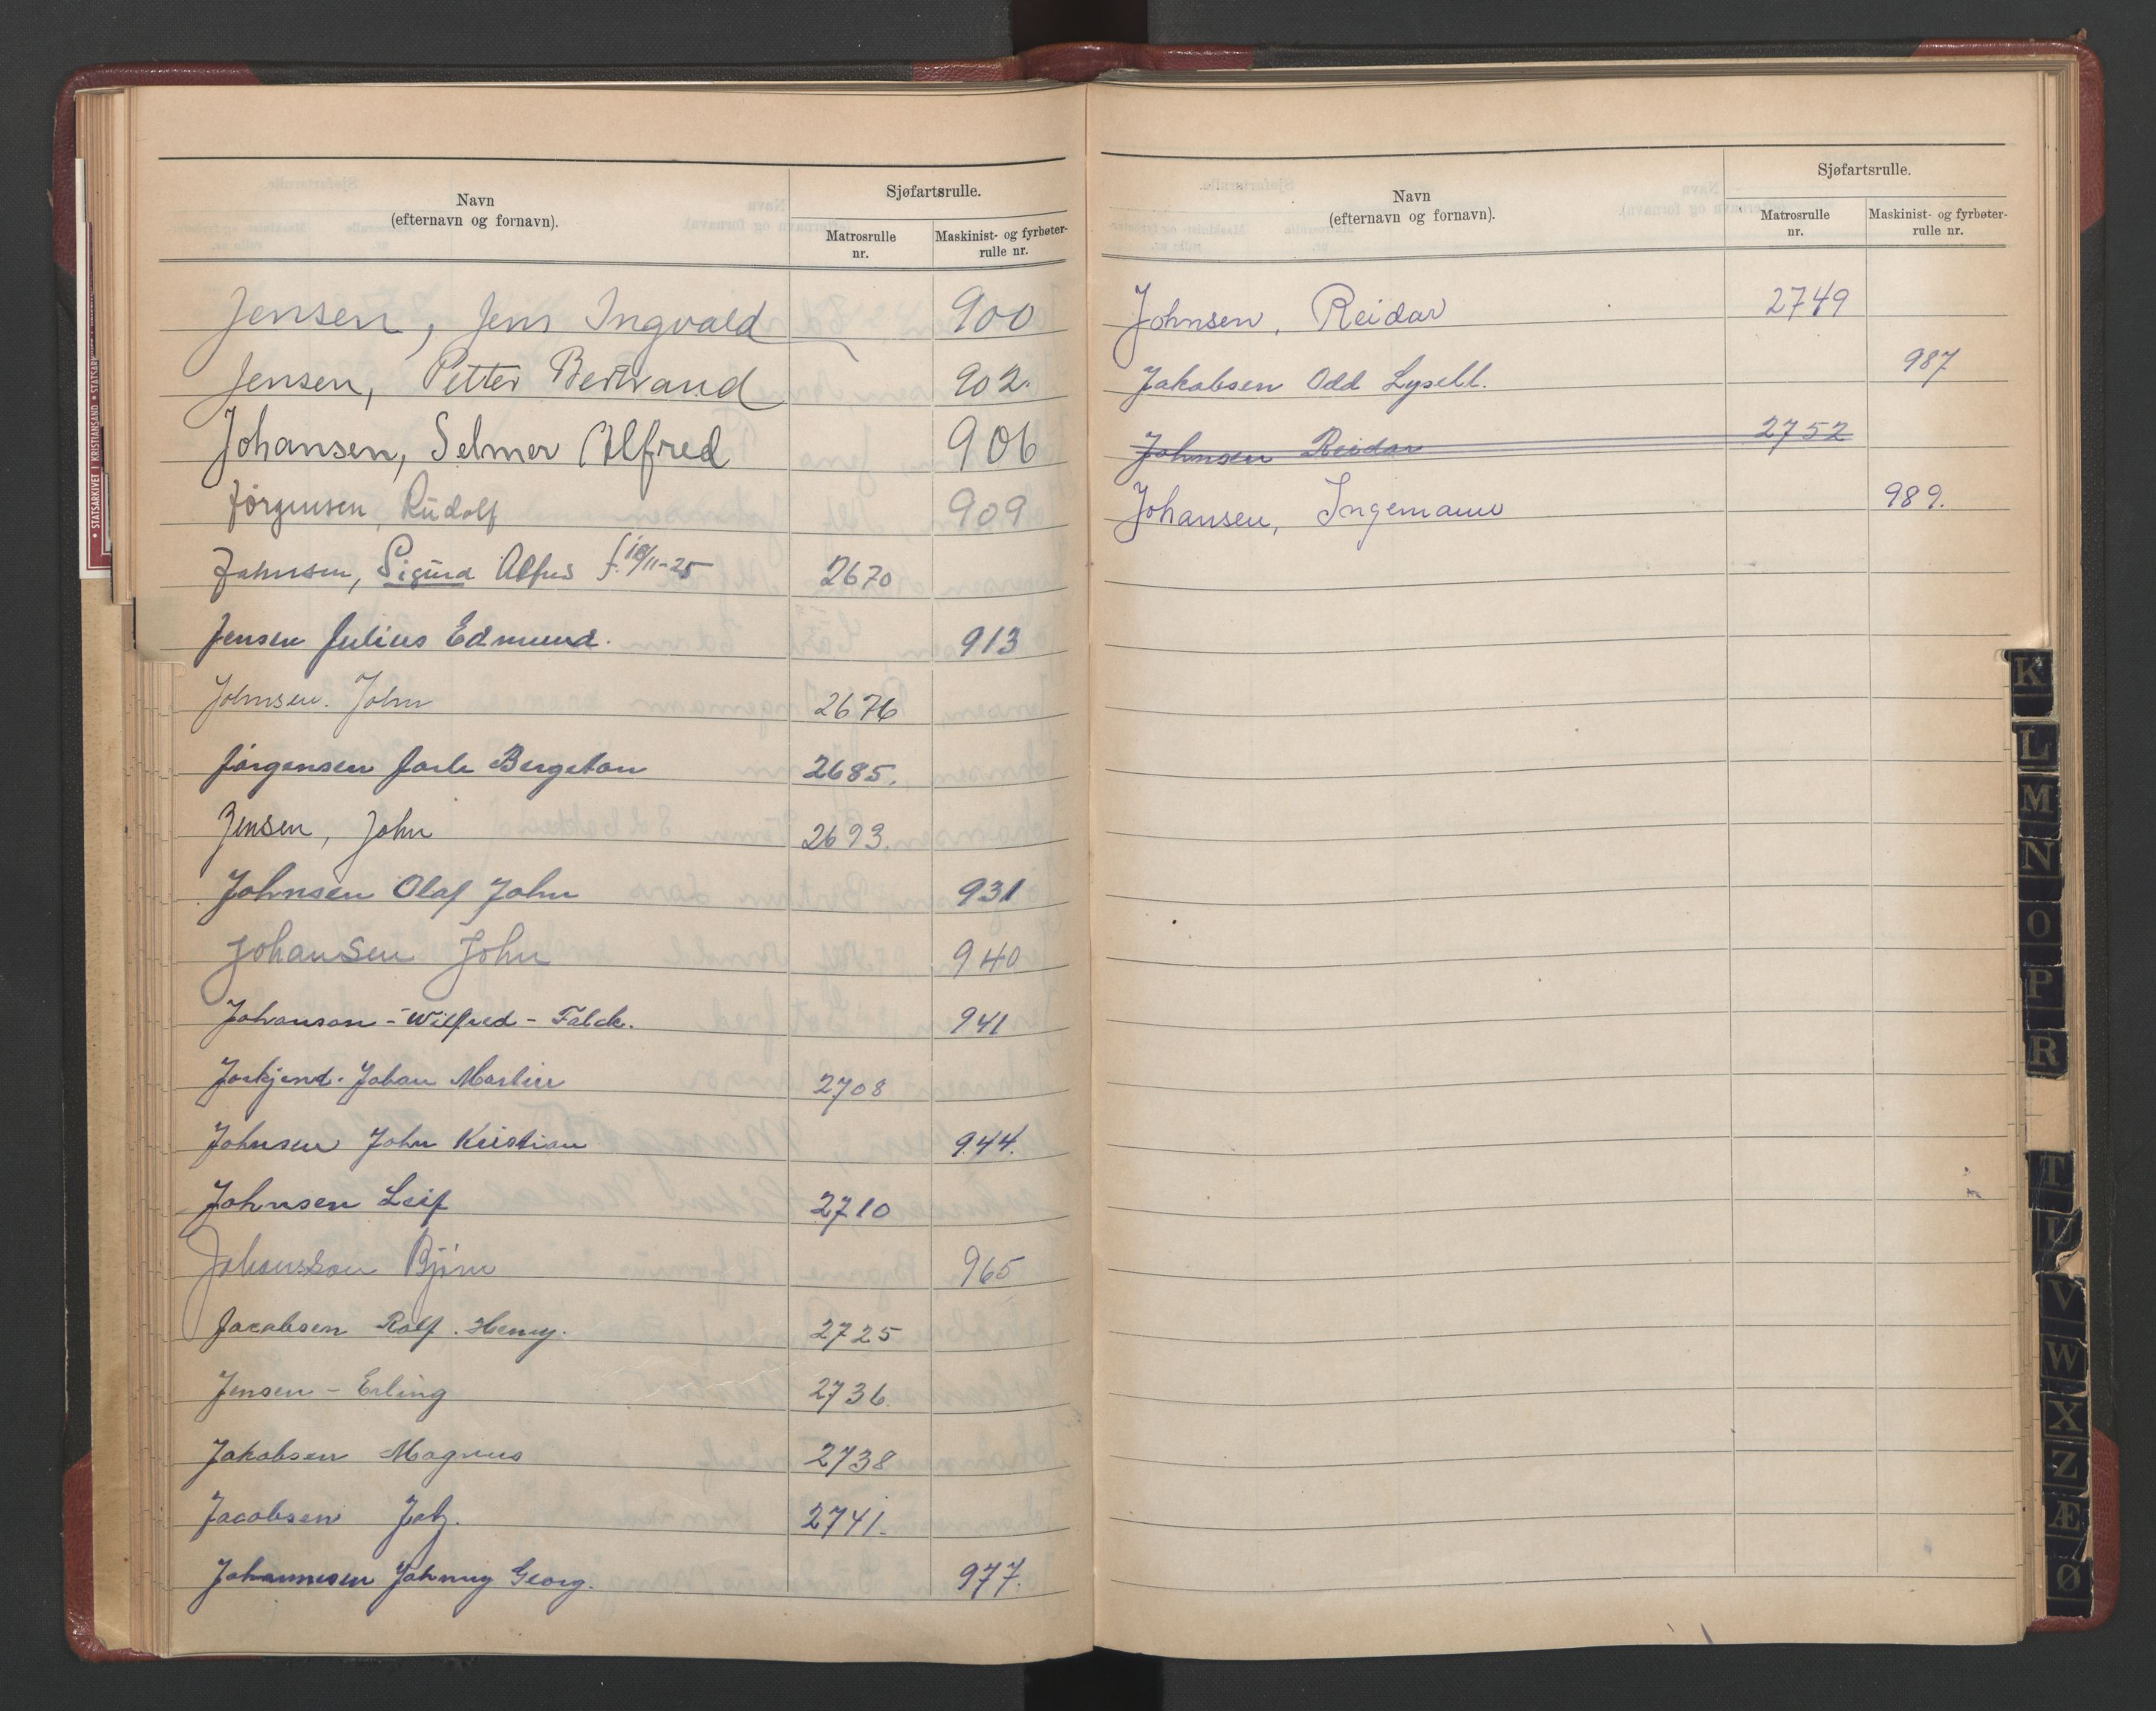 Navn
(efternavn og fornavn).
Sjøfartsrulle.
Matrosrulle
nr.
Maskinist- og fyrbøter-
rulle nr.
Jensen, Jens Ingvald 900
Jensen, Petter Bertrand 902.
Johansen, Selmer Alfred 906
Jørgensen, Rudolf 909
Johnsen, Sigurd f. 18/11-25 2670
Jensen Julius Edmund. 913
Johnsen. John 2676
Jørgensen Jarle Bergeton 2685.
Jensen, John 2693.
Johnsen Olaf John 931
Johansen John 940
Johanson - Wilfred - Falck. 941
Johan Martin 2708
Johnsen John Kristian 944.
Johnsen Leif 2710
Johansson Bjørn 965
Jacobsen Rolf. Henry. 2725
Jensen - Erling 2736
Jakobsen Magnus 2738
Jacobsen 2741.
Johannesen Johnny Georg. 977.
Navn
(efternavn og fornavn).
Sjøfartsrulle.
Matrosrulle
nr.
Maskinist- og fyrbøter-
rulle nr.
Johnsen, Reidar 2749
Jakobsen Odd Lysell. 987
Johnsen Reidar 2752
Johansen, Ingemann 989.
• STATSARKIVET I KRISTIANSAND •
K
L
M
N
O
P
R
T
U
V
W
X
Z
Æ
Ø